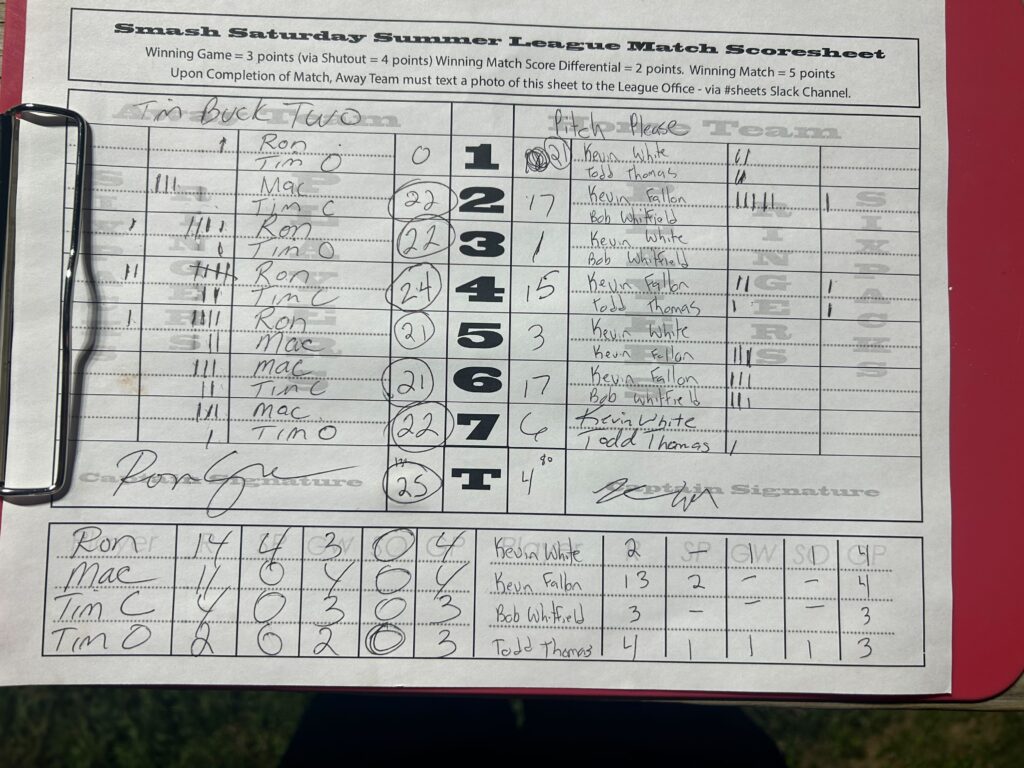 Smash Saturday Summer League Match Scoresheet
Winning Game = 3 points (via Shutout = 4 points) Winning Match Score Differential = 2 points. Winning Match = 5 points
Upon Completion of Match, Away Team must text a photo of this sheet to the League Office - via #sheets Slack Channel.
Tim Buck Two Pitch Please
Home Team
Ron 0 1 21 Kevin White
Tim O Todd Thomas
Mac 22 2 17 Kevin Fallon
Tim C Bob Whitfield
Ron 22 3 1 Kevin White
Tim O Bob Whitfield
Ron 24 4 15 Kevin Fallon
Tim C Todd Thomas
Ron 21 5 3 Kevin White
Mac Kevin Fallon
Mac 21 6 17 Kevin Fallon
Tim C Bob Whitfield
Mac 22 7 6 Kevin White
Tim O Todd Thomas
Captain Signature 25 T 4 80 Captain Signature
Player GW SO GP Player SP GW SO GP
Ron 14 4 3 0 4 Kevin White 2 - 1 1 4
Mac 11 0 4 0 4 Kevin Fallon 13 2 - - 4
Tim C 4 0 3 0 3 Bob Whitfield 3 - - - 3
Tim O 2 0 2 0 3 Todd Thomas 4 1 1 1 3